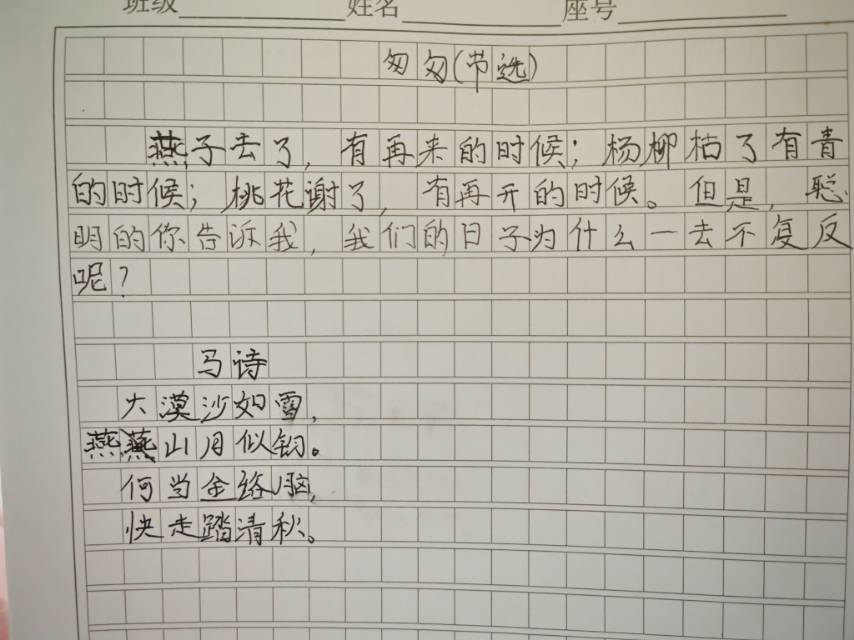 班级 姓名 座号
匆匆(节选)
燕子去了，有再来的时候；杨柳枯了有青
的时候；桃花谢了，有再开的时候。但是，聪
明的你告诉我，我们的日子为什么一去不复反
呢？
马诗
大漠沙如雪，
燕燕山月似钩。
何当金络脑，
快走踏清秋。